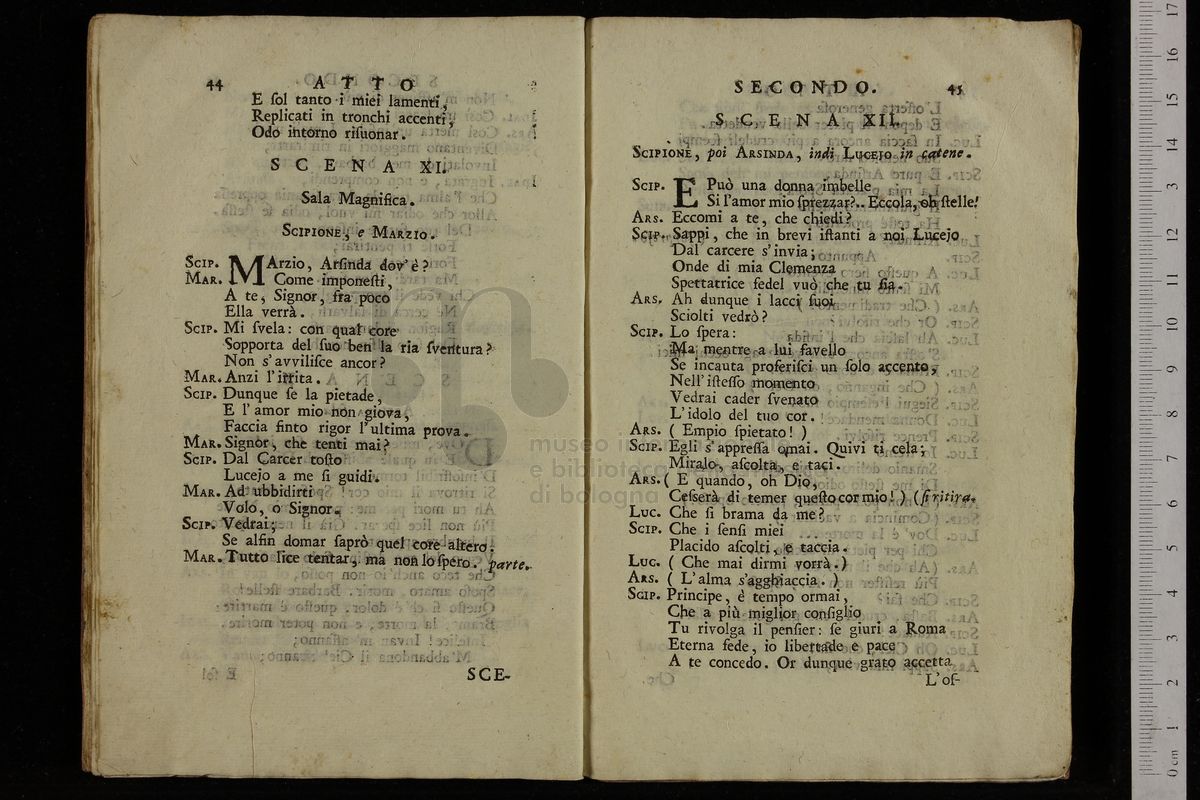 44 ATTO
E ſol tanto i miei lamenti,
Replicati in tronchi accenti,
Odo intorno riſuonar.
SCENA XI.
Sala Magnifica.
SCIPIONE, e MARZIO.
SCIP. MArzio, Arſinda dov'è?
MAR. Come imponeſti,
A te, Signor, fra poco
Ella verrà.
SCIP. Mi ſvela: con qual core
Sopporta del ſuo ben la ria ſventura?
Non s'avviliſce ancor?
MAR. Anzi l'irrita.
SCIP. Dunque ſe la pietade,
E l'amor mio non giova,
Faccia finto rigor l'ultima prova.
MAR. Signor, che tenti mai?
SCIP. Dal Carcer toſto
Lucejo a me ſi guidi.
MAR. Ad ubbidirti
Volo, o Signor.
SCIP. Vedrai;
Se alfin domar ſaprò quel core altero.
MAR. Tutto lice tentar, ma non lo ſpero. parte.
SCE-
SECONDO. 45
SCENA XII.
SCIPIONE, poi ARSINDA, indi LUCEJO in catene.
SCIP. E Può una donna imbelle
Si l'amor mio ſprezzar?.. Eccola, oh ſtelle!
ARS. Eccomi a te, che chiedi?
SCIP. Sappi, che in brevi iſtanti a noi Lucejo
Dal carcere s'invia;
Onde di mia Clemenza
Spettatrice fedel vuò che tu ſia.
ARS. Ah dunque i lacci ſuoi
Sciolti vedrò?
SCIP. Lo ſpera:
Ma mentre a lui favello
Se incauta proferiſci un ſolo accento,
Nell'iſteſſo momento
Vedrai cader ſvenato
L'idolo del tuo cor.
ARS. ( Empio ſpietato! )
SCIP. Egli s'appreſſa omai. Quivi ti cela;
Miralo, aſcolta, e taci.
ARS. ( E quando, oh Dio,
Ceſſerà di temer queſto cor mio! ) (ſi ritira.
LUC. Che ſi brama da me?
SCIP. Che i ſenſi miei
Placido aſcolti, e taccia.
LUC. ( Che mai dirmi vorrà. )
ARS. ( L'alma s'agghiaccia. )
SCIP. Principe, è tempo ormai,
Che a più miglior conſiglio
Tu rivolga il penſier: ſe giuri a Roma
Eterna fede, io libertade e pace
A te concedo. Or dunque grato accetta
L'of-